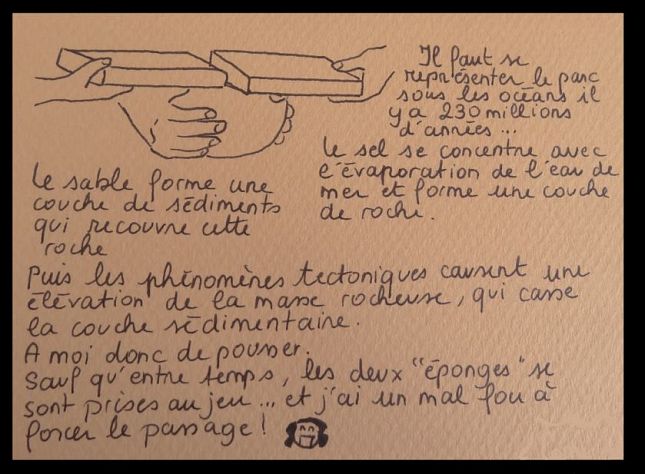 Il faut se
représenter le parc
sous les océans il
y a 230 millions
d'années...
Le sel se concentre avec
l'évaporation de l'eau de
mer et forme une couche
de roche.
Le sable forme une
couche de sédiments
qui recouvre cette
roche
Puis les phénomènes tectoniques causent une
élévation de la masse rocheuse, qui casse
la couche sédimentaire.
A moi donc de pousser.
Sauf qu'entre temps, les deux "éponges" se
sont prises au jeu... et j'ai un mal fou à
forcer le passage !